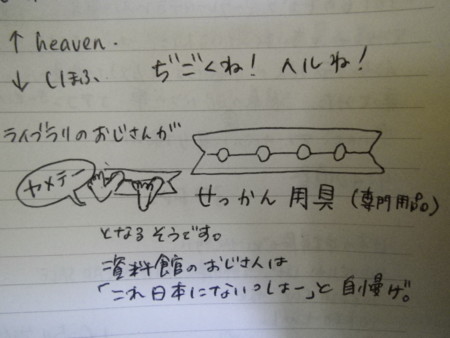 ↑ heaven.
↓ しほふ、 ぢごくね! ヘルね!
ライブラリのおじさんが
ヤメテー
せっかん用具 (専門用品)
となるそうです。
資料館のおじさんは
「これ日本にないっしょー」と自慢げ。